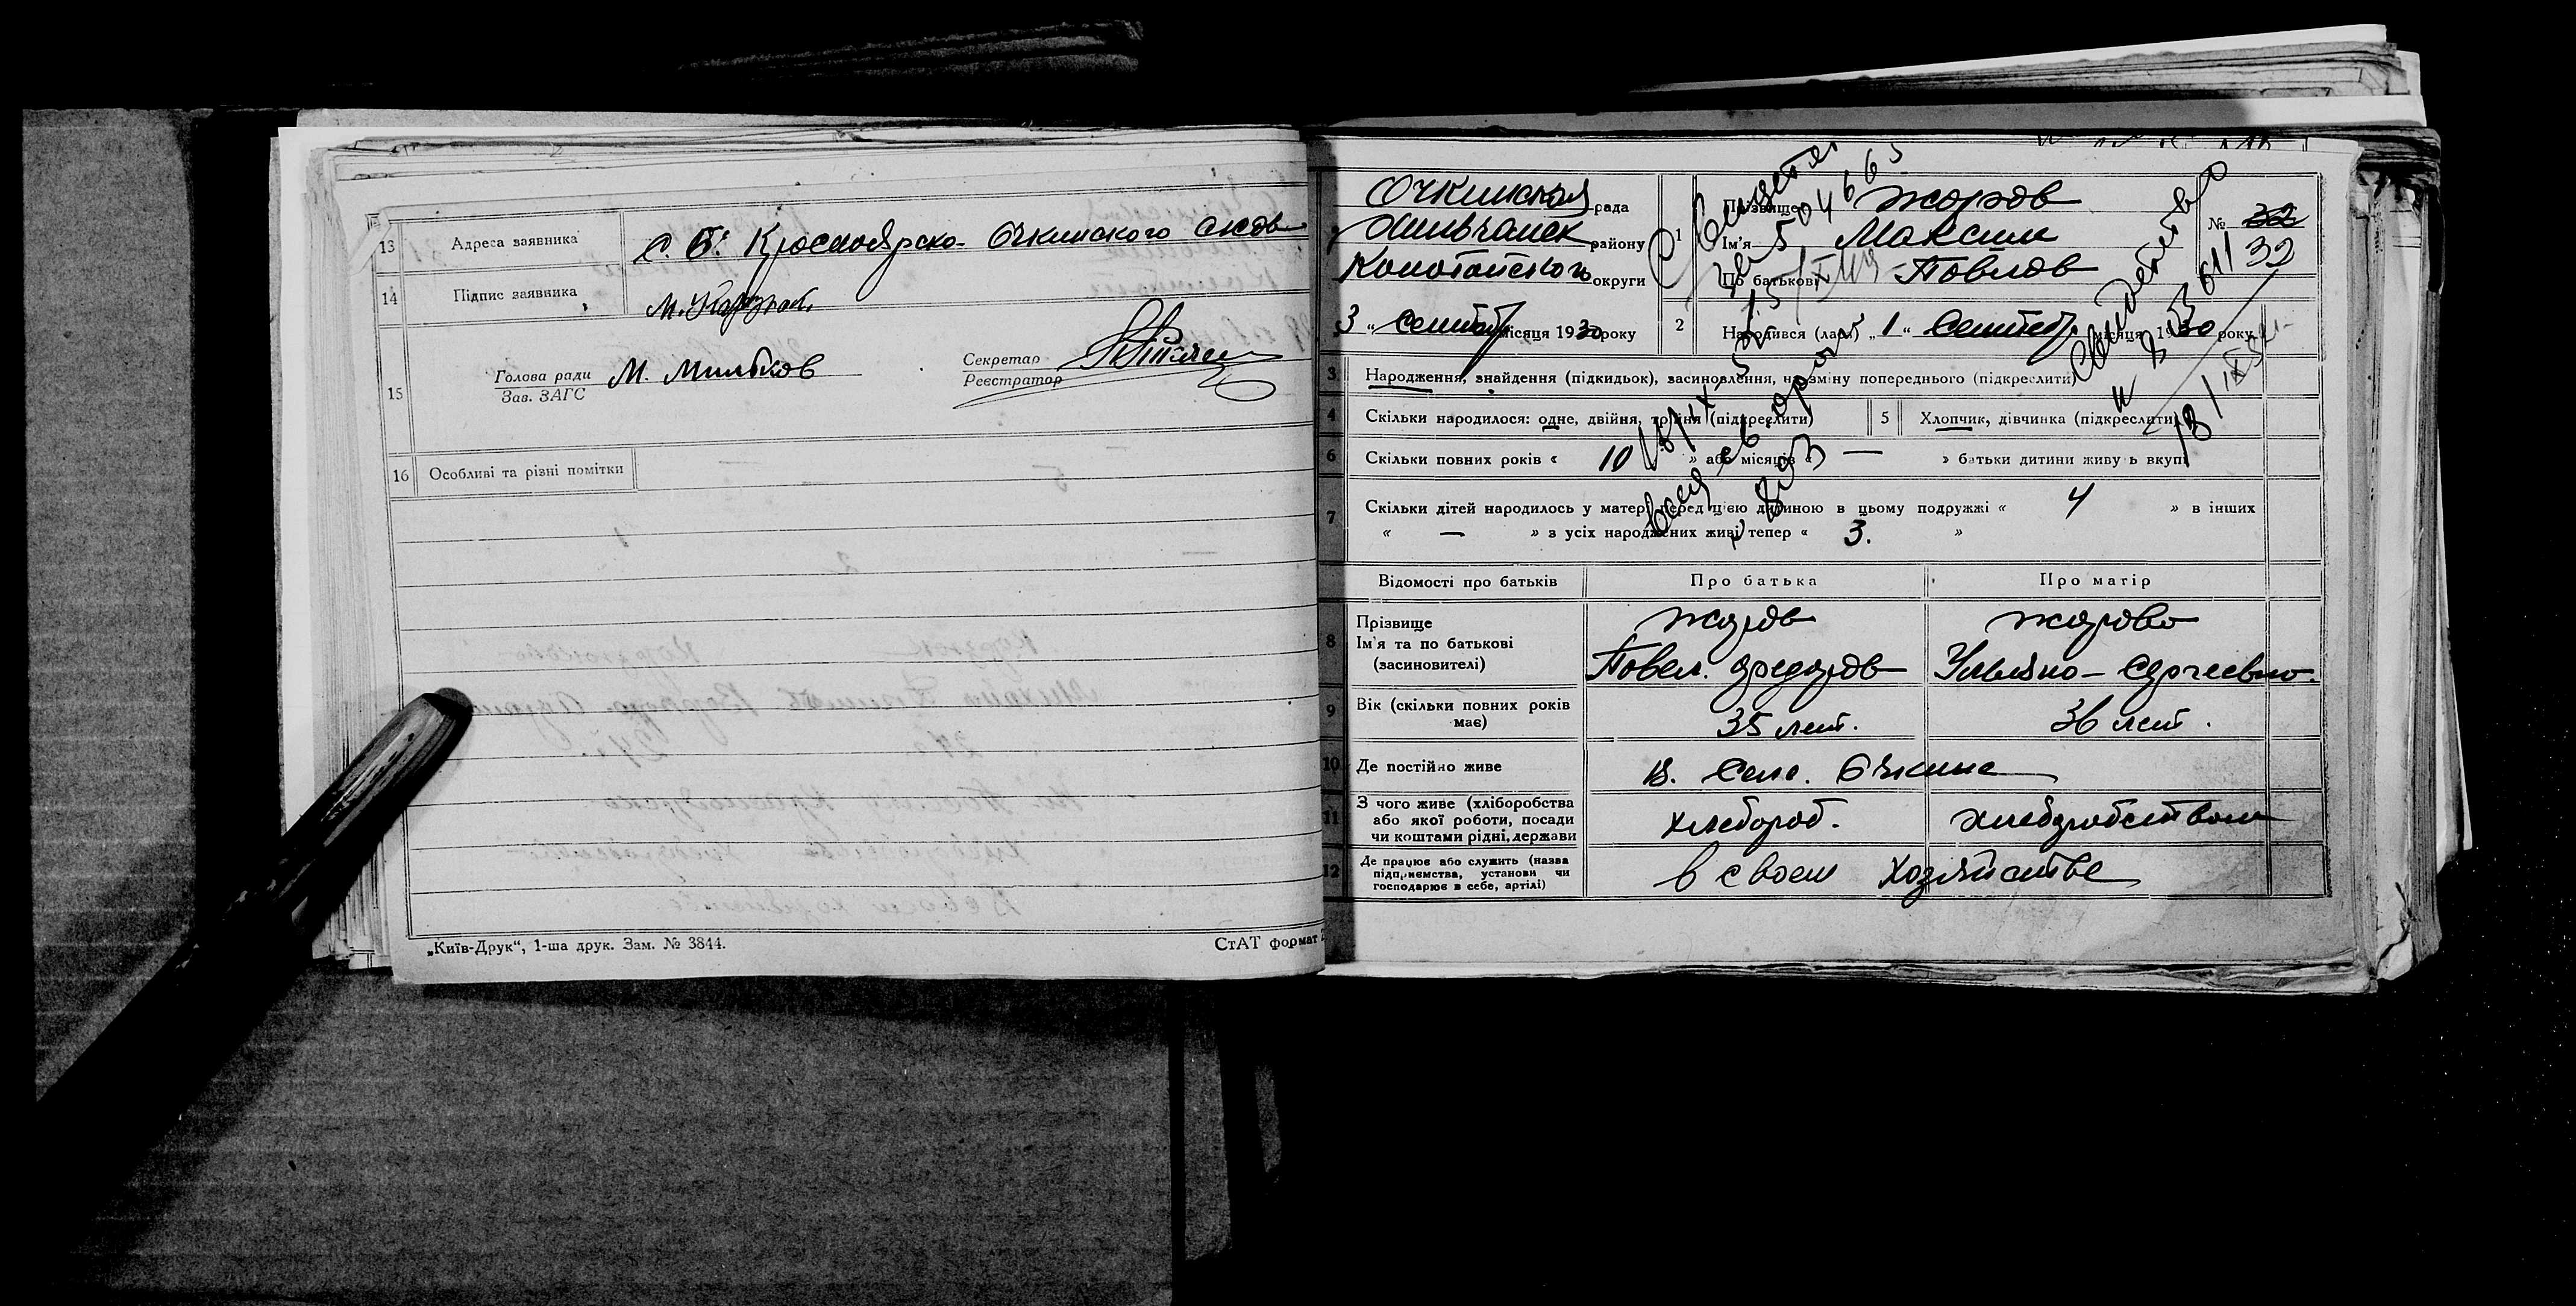 13 Адреса заявника с. Б. Красноярско- Очкинского
14 Підпис заявника
15 Голова ради М. Мильков
Зав. ЗАГС
Секретар
Реєстратор
16 Особливі та різні помітки —
„Київ-Друк“, 1-ша друк. Зам. № 3844.
СтАТ формат
Очкинская рада
району
Конотопского округи
3 “ Сентяб місяця 1930 року
1 Прізвище Жоров
Ім'я Максим
По батькові Павлов
№ 32
32
2 Народився (лась) „ 1 “ Сентяб місяця 1930 року
3 Народження, знайдення (підкидьок), засиновлення, на зміну попереднього (підкреслити)
4 Скільки народилося: одне, двійня, трійня (підкреслити)
5 Хлопчик, дівчинка (підкреслити)
6 Скільки повних років « 10 » або місяців « — » батьки дитини живуть вкупі
7 Скільки дітей народилось у матері перед цією дитиною в цьому подружжі « 4 » в інших
« — » з усіх народжених живі тепер « 3. »
Відомості про батьків Про батька Про матір
8 Прізвище Жоров Жорова
Ім'я та по батькові
(засиновителі) Павел. Федоров Ульяна - Сергеевна.
9 Вік (скільки повних років має) 35 лет. 36 лет.
10 Де постійно живе в. Селе. Очкине
11 З чого живе (хліборобства
або якої роботи, посади
чи коштами рідні, держави хлебороб. хлеборобством
12 Де працює або служить (назва
підприємства, установи чи
господарює в себе, артілі) в своем хозяйстве
Свидетельство
504665